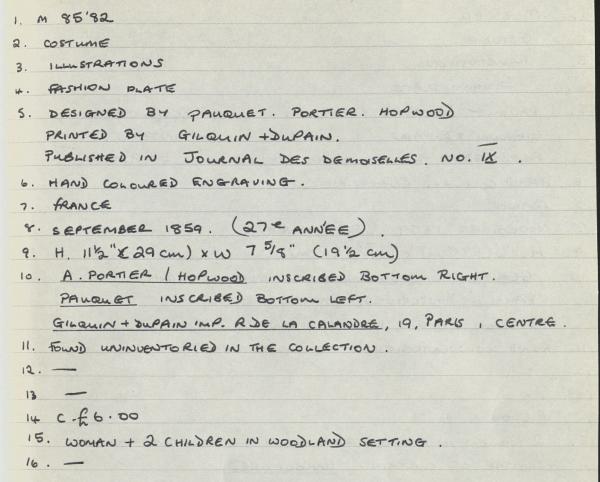 1. M 85'82
2. COSTUME
3. ILLUSTRATIONS
4. FASHION PLATE
5. DESIGNED BY PAUQUET. PORTIER. HOPWOOD
PRINTED BY GILQUIN + DUPAIN.
PUBLISHED IN JOURNAL DES DEMOISELLES. NO. IX.
6. HAND COLOURED ENGRAVING.
7. FRANCE
8. SEPTEMBER 1859. (27e ANNÉE).
9. H. 11½" (29 cm) x W 7 5/8" (19½ cm)
10. A. PORTIER / HOPWOOD INSCRIBED BOTTOM RIGHT.
PAUQUET INSCRIBED BOTTOM LEFT.
GILQUIN + DUPAIN IMP. R DE LA CALANDRE, 19, PARIS, CENTRE.
11. FOUND UNINVENTORIED IN THE COLLECTION.
12. —
13 —
14 C. £6.00
15. WOMAN + 2 CHILDREN IN WOODLAND SETTING.
16. —